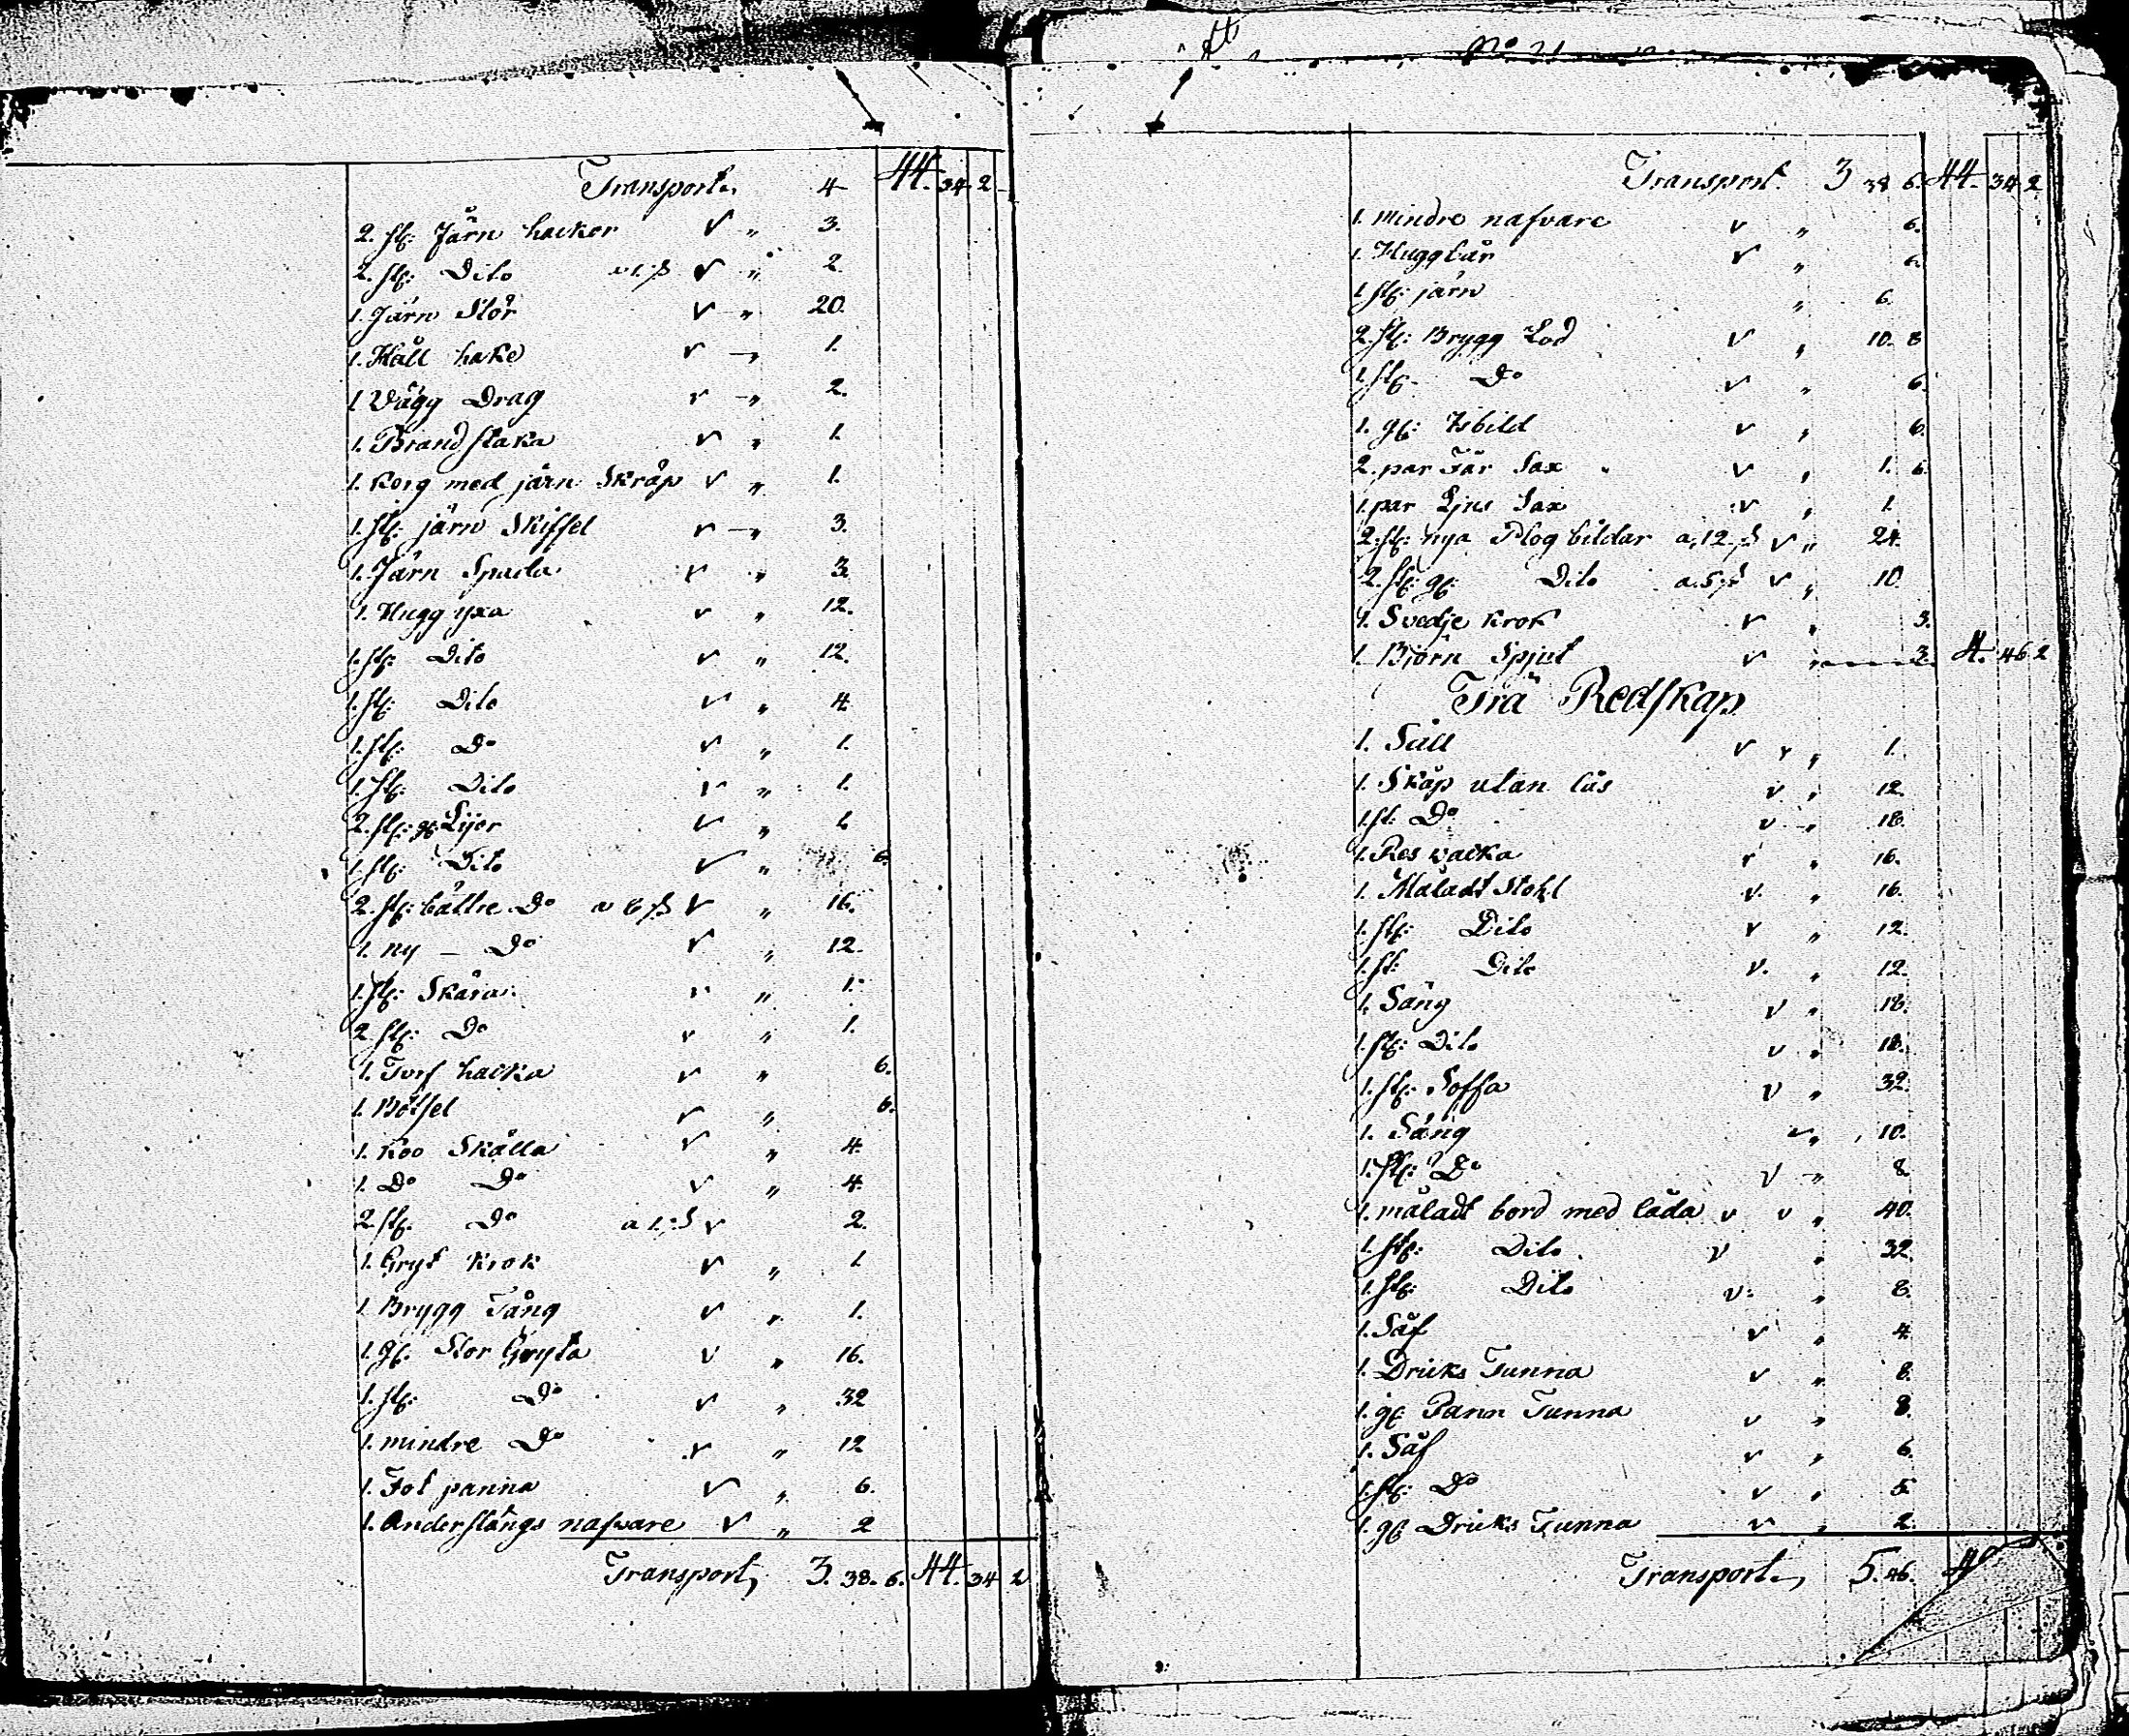 Transport 4 44. 34 2
2. st: Järn hackor v „ 3.
2. st: Dito a 1 ß v „ 2.
1. Järn Stör v „ 20.
1. Håll hake v „ 1.
1 Vägg Drag v „ 2.
1. Brand staka v „ 1.
1. Korg med järn Skråp v „ 1.
1. st: järn Skiffel v „ 3.
1. Järn Spada v „ 3.
1. Hugg yxa v „ 12.
1. st: Dito v „ 12.
1. st: Dito v „ 4
1. st: Do v „ 1.
1. st: Dito v „ 1.
2. st: gl: Lijor v „
1. st: Dito v „ 6.
2. st: bättre Do a 8 ß v „ 16.
1. ny — Do v „ 12.
1. st: Skära v „ 1.
2 st: Do v „ 1.
1. Torf hacka v „ 6.
1. Bötsel v „ 6.
1. Koo Skälla v „ 4.
1. Do Do v „ 4.
2 st. Do a 1. ß v 2.
1. Gryt Krok v „ 1
1. Brygg Tång v „ 1.
1. gl. Stor Gryta v „ 16.
1. st: Do v „ 32
1. mindre Do v „ 12
1. Fot panna v „ 6.
1. Anderstångs nafware v „ 2
Transport, 3. 38. 6. 44. 34 2
Transport. 3 38 6. 44. 34 2
1. mindre nafvare v „ 6.
1. Huggbår v „ 6.
1 st: järn „ 6.
2. st: Brygg Lod v „ 10. 8
1. st. Do v „ 6.
1. gl: Isbild v „ 6.
2. par Får Sax v „ 1. 6.
1. par Ljus Sax v „ 1.
2. st: nya Plog bildar a, 12 ß v „ 24.
2. st: gl: Dito a. 5 ß v „ 10
1. Svedje Krok v „ 3.
1. Björn Spjut v „ 3. 4. 46 2
Trä Redskap
1. Såll v v „ 1.
1. Skåp utan lås v „ 12.
1. st: Do v „ 16.
1. Res wacka v „ 16.
1. Måladt Stohl v. „ 16.
1. st: Dito v „ 12.
1. st: Dito v. „ 12.
1. Säng v „ 18.
1. st: Dito v „ 18.
1. st: Soffa v „ 32.
1. Säng v „ 10.
1. st: Do v „ 8
1. måladt bord med låda v v „ 40.
1. st: Dito v „ 32
1. st: Dito v. „ 8.
1. Såf v „ 4
1. Dricks Tunna v „ 8.
1. gl Pann Tunna v „ 8.
1. Såf v „ 6.
1. st: Do v „ 5
1. gl Dricks Tunna v „ 2.
Transport, 5. 46.